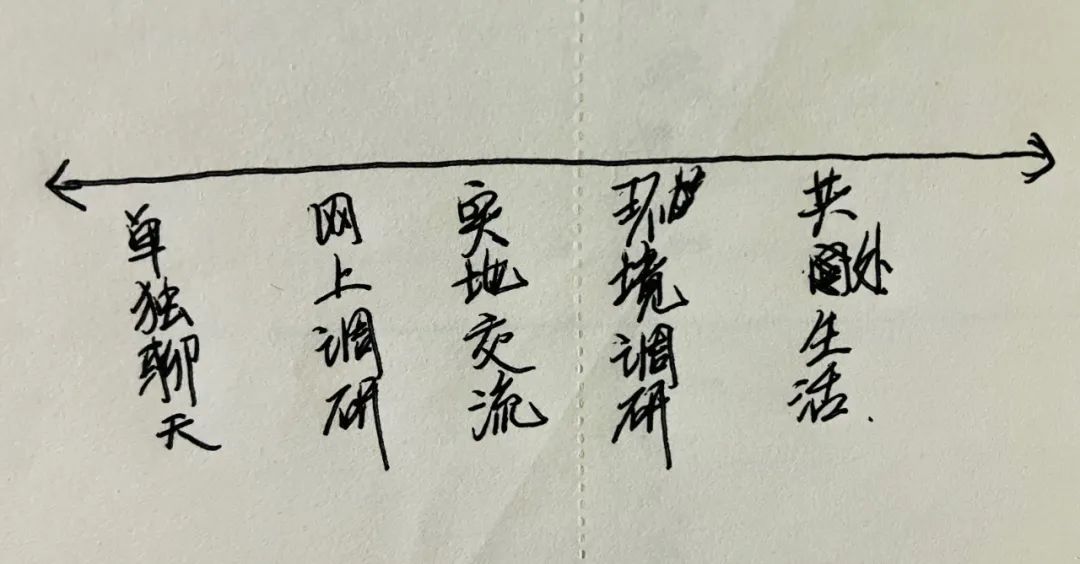 单独聊天
网上调研
实地交流
环境调研
共处生活.